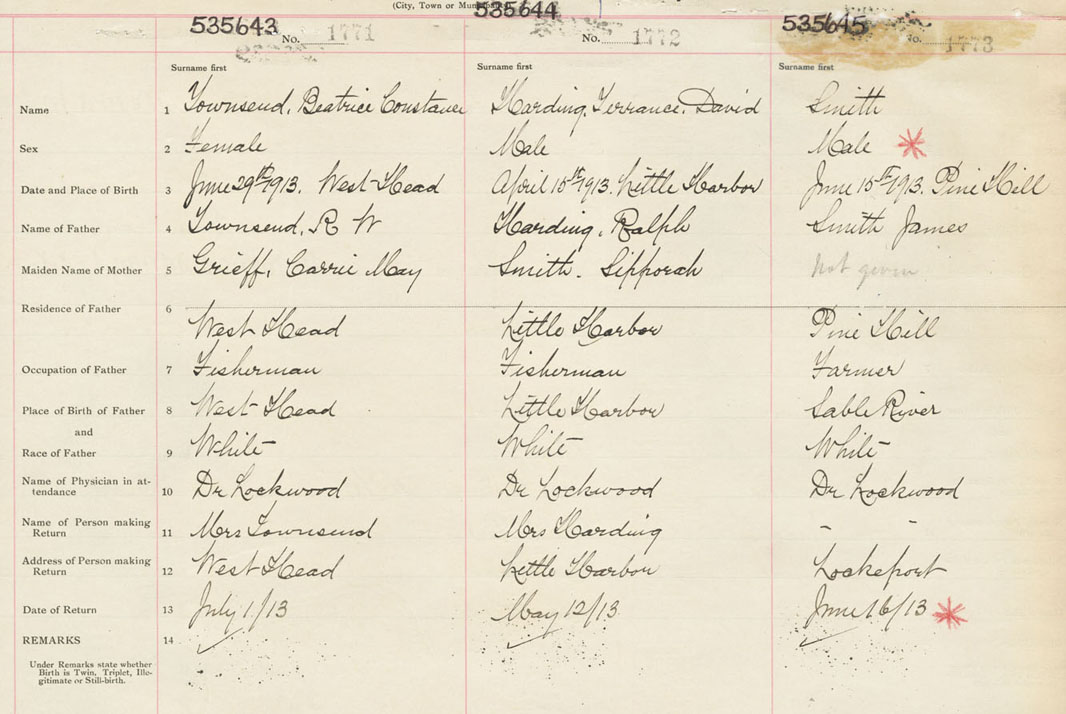 (City, Town or Municipality)
535643 No. 1771 535644 No. 1772 535645 No. 1773
Surname first Surname first Surname first
Name 1 Townsend, Beatrice Constance Harding, Terrance, David Smith
Sex 2 Female Male Male *
Date and Place of Birth 3 June 29th 1913. West Head April 15th 1913. Little Harbor June 15th 1913. Pine Hill
Name of Father 4 Townsend, R W Harding, Ralph Smith James
Maiden Name of Mother 5 Grieff, Carrie May Smith. Sipporah Not given
Residence of Father 6 West Head Little Harbor Pine Hill
Occupation of Father 7 Fisherman Fisherman Farmer
Place of Birth of Father 8 West Head Little Harbor Sable River
and
Race of Father 9 White White White
Name of Physician in at-
tendance 10 Dr Lockwood Dr Lockwood Dr Lockwood
Name of Person making
Return 11 Mrs Townsend Mrs Harding - -
Address of Person making
Return 12 West Head Little Harbor Lockeport
Date of Return 13 July 1/13 May 12/13 June 16/13 *
REMARKS 14
Under Remarks state whether
Birth is Twin, Triplet, Ille-
gitimate or Still-birth.